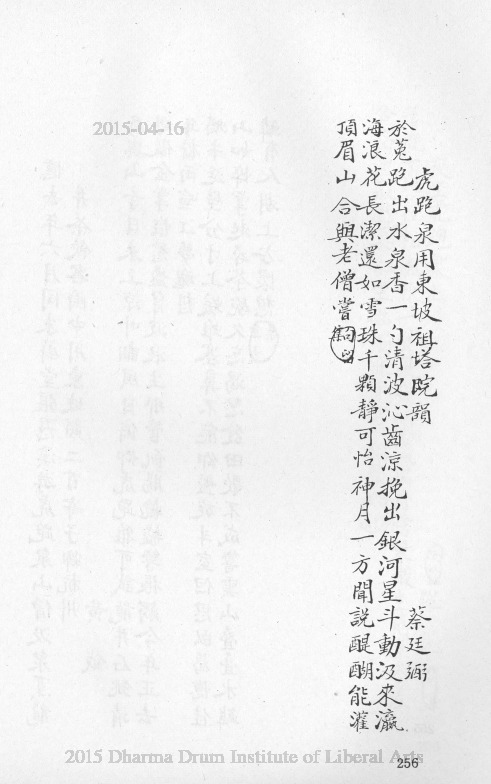 2015-04-16
虎跑泉用東坡祖塔院韻 蔡廷弼
於菟跑出水泉香一勺清波沁齒涼挽出銀河星斗動汲來瀛
海浪花長潔還如雪珠千顆靜可怡神月一方聞說醍醐能灌
頂眉山合與老僧嘗
2015 Dharma Drum Institute of Liberal Arts
256